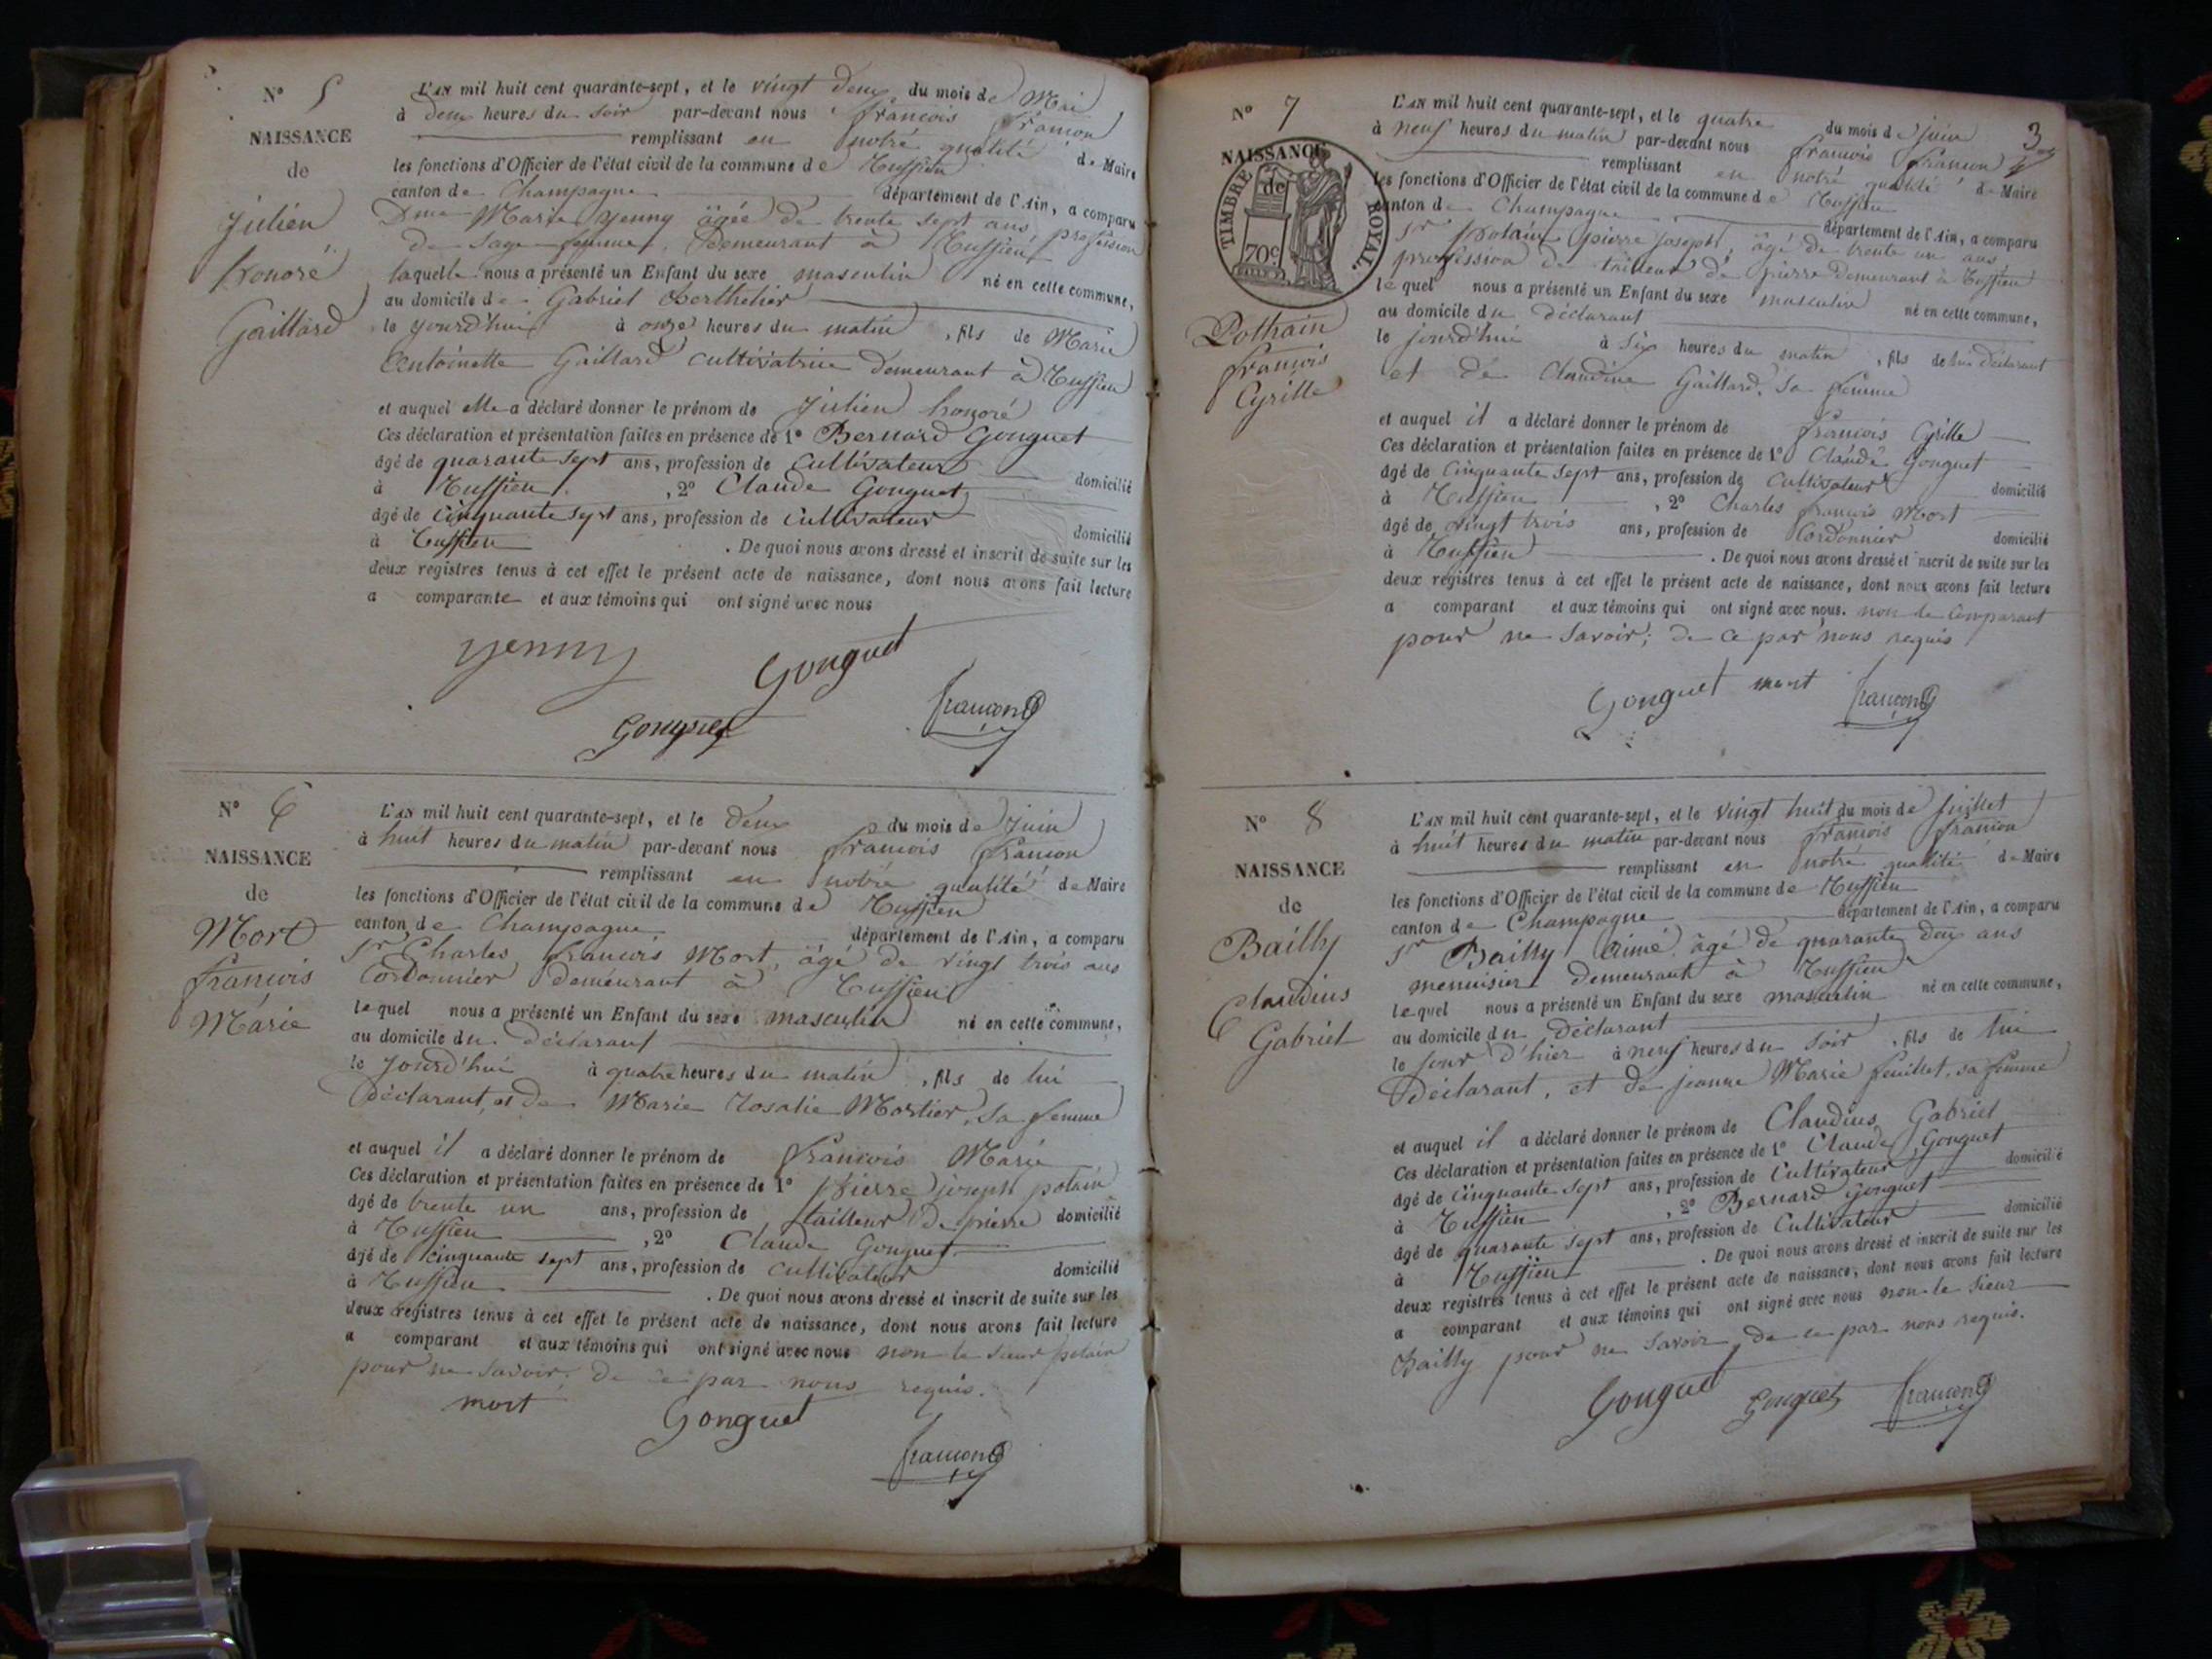 N° 5
NAISSANCE
de
Julien
honoré
Gaillard
L'AN mil huit cent quarante-sept, et le vingt deux du mois de Mai
à deux heures du soir par-devant nous francois francon
remplissant en notre qualité de Maire
les fonctions d'Officier de l'état civil de la commune de Tussieu
canton de Champagne département de l'Ain, a comparu
Dme Marie yenny âgée de trente sept ans, profession
de Sage femme, Demeurant à Tussieu
laquelle nous a présenté un Enfant du sexe masculin né en cette commune,
au domicile de Gabriel Berthelier
le jourd'hui à onze heures du matin, fils de Marie
Antoinette Gaillard cultivatrice demeurant à Tussieu
et auquel elle a déclaré donner le prénom de Julien honoré
Ces déclaration et présentation faites en présence de 1° Bernard Gonguet
âgé de quarante sept ans, profession de Cultivateur domicilié
à Tussieu, 2° Claude Gonguet
âgé de cinquante sept ans, profession de Cultivateur domicilié
à Tussieu. De quoi nous avons dressé et inscrit de suite sur les
deux registres tenus à cet effet le présent acte de naissance, dont nous avons fait lecture
a comparante et aux témoins qui ont signé avec nous
yenny Gonguet
Gonguet francon
N° 6
NAISSANCE
de
Mort
francois
Marie
L'AN mil huit cent quarante-sept, et le deux du mois de Juin
à huit heures du matin par-devant nous francois francon
remplissant en notre qualité de Maire
les fonctions d'Officier de l'état civil de la commune de Tussieu
canton de Champagne département de l'Ain, a comparu
Sr Charles francois Mort, âgé de vingt trois ans
Cordonnier demeurant à Tussieu
lequel nous a présenté un Enfant du sexe masculin né en cette commune,
au domicile du déclarant
le jourd'hui à quatre heures du matin, fils de lui
déclarant, et de Marie Rosalie Mortier, sa femme
et auquel il a déclaré donner le prénom de francois Marie
Ces déclaration et présentation faites en présence de 1° pierre joseph potain
âgé de trente un ans, profession de tailleur de pierre domicilié
à Tussieu, 2° Claude Gonguet
âgé de cinquante sept ans, profession de cultivateur domicilié
à Tussieu. De quoi nous avons dressé et inscrit de suite sur les
deux registres tenus à cet effet le présent acte de naissance, dont nous avons fait lecture
a comparant et aux témoins qui ont signé avec nous non le sieur potain
pour ne savoir, de ce par nous requis.
mort Gonguet
francon
3
N° 7
NAISSANCE
de
TIMBRE ROYAL.
70c
Pothain
francois
Cyrille
L'AN mil huit cent quarante-sept, et le quatre du mois de juin
à neuf heures du matin par-devant nous francois francon
remplissant en notre qualité de Maire
les fonctions d'Officier de l'état civil de la commune de Tussieu
canton de Champagne département de l'Ain, a comparu
Sr potain pierre joseph, âgé de trente un ans
profession de tailleur de pierre demeurant à Tussieu
lequel nous a présenté un Enfant du sexe masculin né en cette commune,
au domicile du déclarant
le jourd'hui à six heures du matin, fils de lui déclarant
et de Claudine Gaillard, sa femme
et auquel il a déclaré donner le prénom de francois Cyrille
Ces déclaration et présentation faites en présence de 1° Claude Gonguet
âgé de cinquante sept ans, profession de Cultivateur domicilié
à Tussieu, 2° Charles francois Mort
âgé de vingt trois ans, profession de Cordonnier domicilié
à Tussieu. De quoi nous avons dressé et inscrit de suite sur les
deux registres tenus à cet effet le présent acte de naissance, dont nous avons fait lecture
a comparant et aux témoins qui ont signé avec nous. non le comparant
pour ne savoir; de ce par nous requis
Gonguet mort francon
N° 8
NAISSANCE
de
Bailly
Claudius
Gabriel
L'AN mil huit cent quarante-sept, et le vingt huit du mois de juillet
à huit heures du matin par-devant nous francois francon
remplissant en notre qualité de Maire
les fonctions d'Officier de l'état civil de la commune de Tussieu
canton de Champagne département de l'Ain, a comparu
Sr Bailly aimé âgé de quarante deux ans
menuisier demeurant à Tussieu
lequel nous a présenté un Enfant du sexe masculin né en cette commune,
au domicile du déclarant
le jour d'hier à neuf heures du soir, fils de lui
déclarant, et de jeanne Marie feuillet, sa femme
et auquel il a déclaré donner le prénom de Claudius Gabriel
Ces déclaration et présentation faites en présence de 1° Claude Gonguet
âgé de cinquante sept ans, profession de Cultivateur domicilié
à Tussieu, 2° Bernard Gonguet
âgé de quarante sept ans, profession de Cultivateur domicilié
à Tussieu. De quoi nous avons dressé et inscrit de suite sur les
deux registres tenus à cet effet le présent acte de naissance, dont nous avons fait lecture
a comparant et aux témoins qui ont signé avec nous non le sieur
Bailly pour ne savoir, de ce par nous requis.
Gonguet Gonguet francon